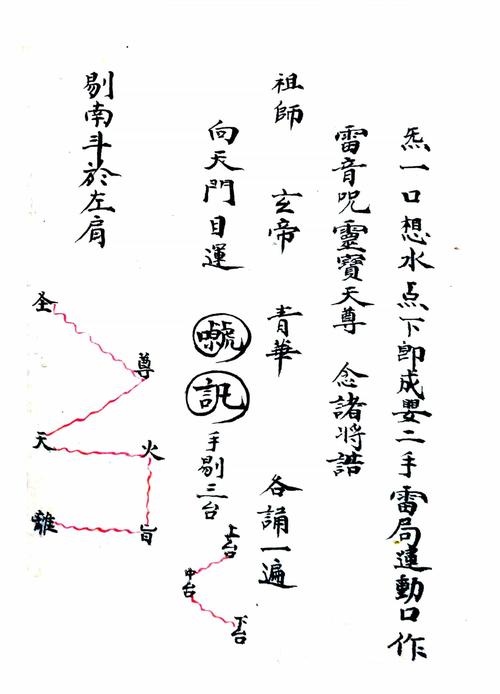 炁一口想水点下即成嬰二手雷局運動口作
雷音呪靈寶天尊 念諸將誥
祖師 玄帝 青華 各誦一遍
向天門目運
訊
手剔三台
上台
中台
下台
剔南斗於左肩
圣
尊
天
火
旨
離